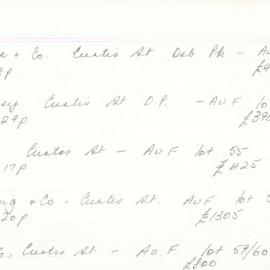 & Co. Curtis St. Osb Pk - Au
£4
ey Curtis St O.P. - Au F. lo
29p £390
Curtis St - Au F lot 55
17p £425
ng & Co - Curtis St. Au F lot 5
20p £1305
Curtis St - Au. F. lot 59/60
£800